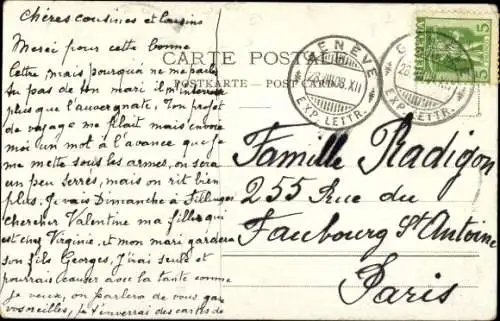 Chères cousines et cousins
Merci pour cette bonne
lettre mais pourquoi ne me parle
tu pas de ton mari il m'intéresse
plus que l'auvergnate. Ton projet
de voyage me plait mais envoie
moi un mot à l'avance que je
me mette sous les armes, on sera
un peu serrés, mais on rit bien
plus. Je vais Dimanche à
chercher Valentine ma fille qui
est chez Virginie, et mon mari gardera
son fils Georges, J'irai seule et
pourrais causer avec la tante comme
je veux, on parlera de vous gare
vos oreilles, je t'enverrai des cartes de
CARTE POSTALE
POSTKARTE — POST CARD
GENÈVE
23.VII.08.XII
EXP. LETTR.
G
23
EXP. LETTR.
5
5
Famille Radigon
255 Rue du
Faubourg St Antoine
Paris